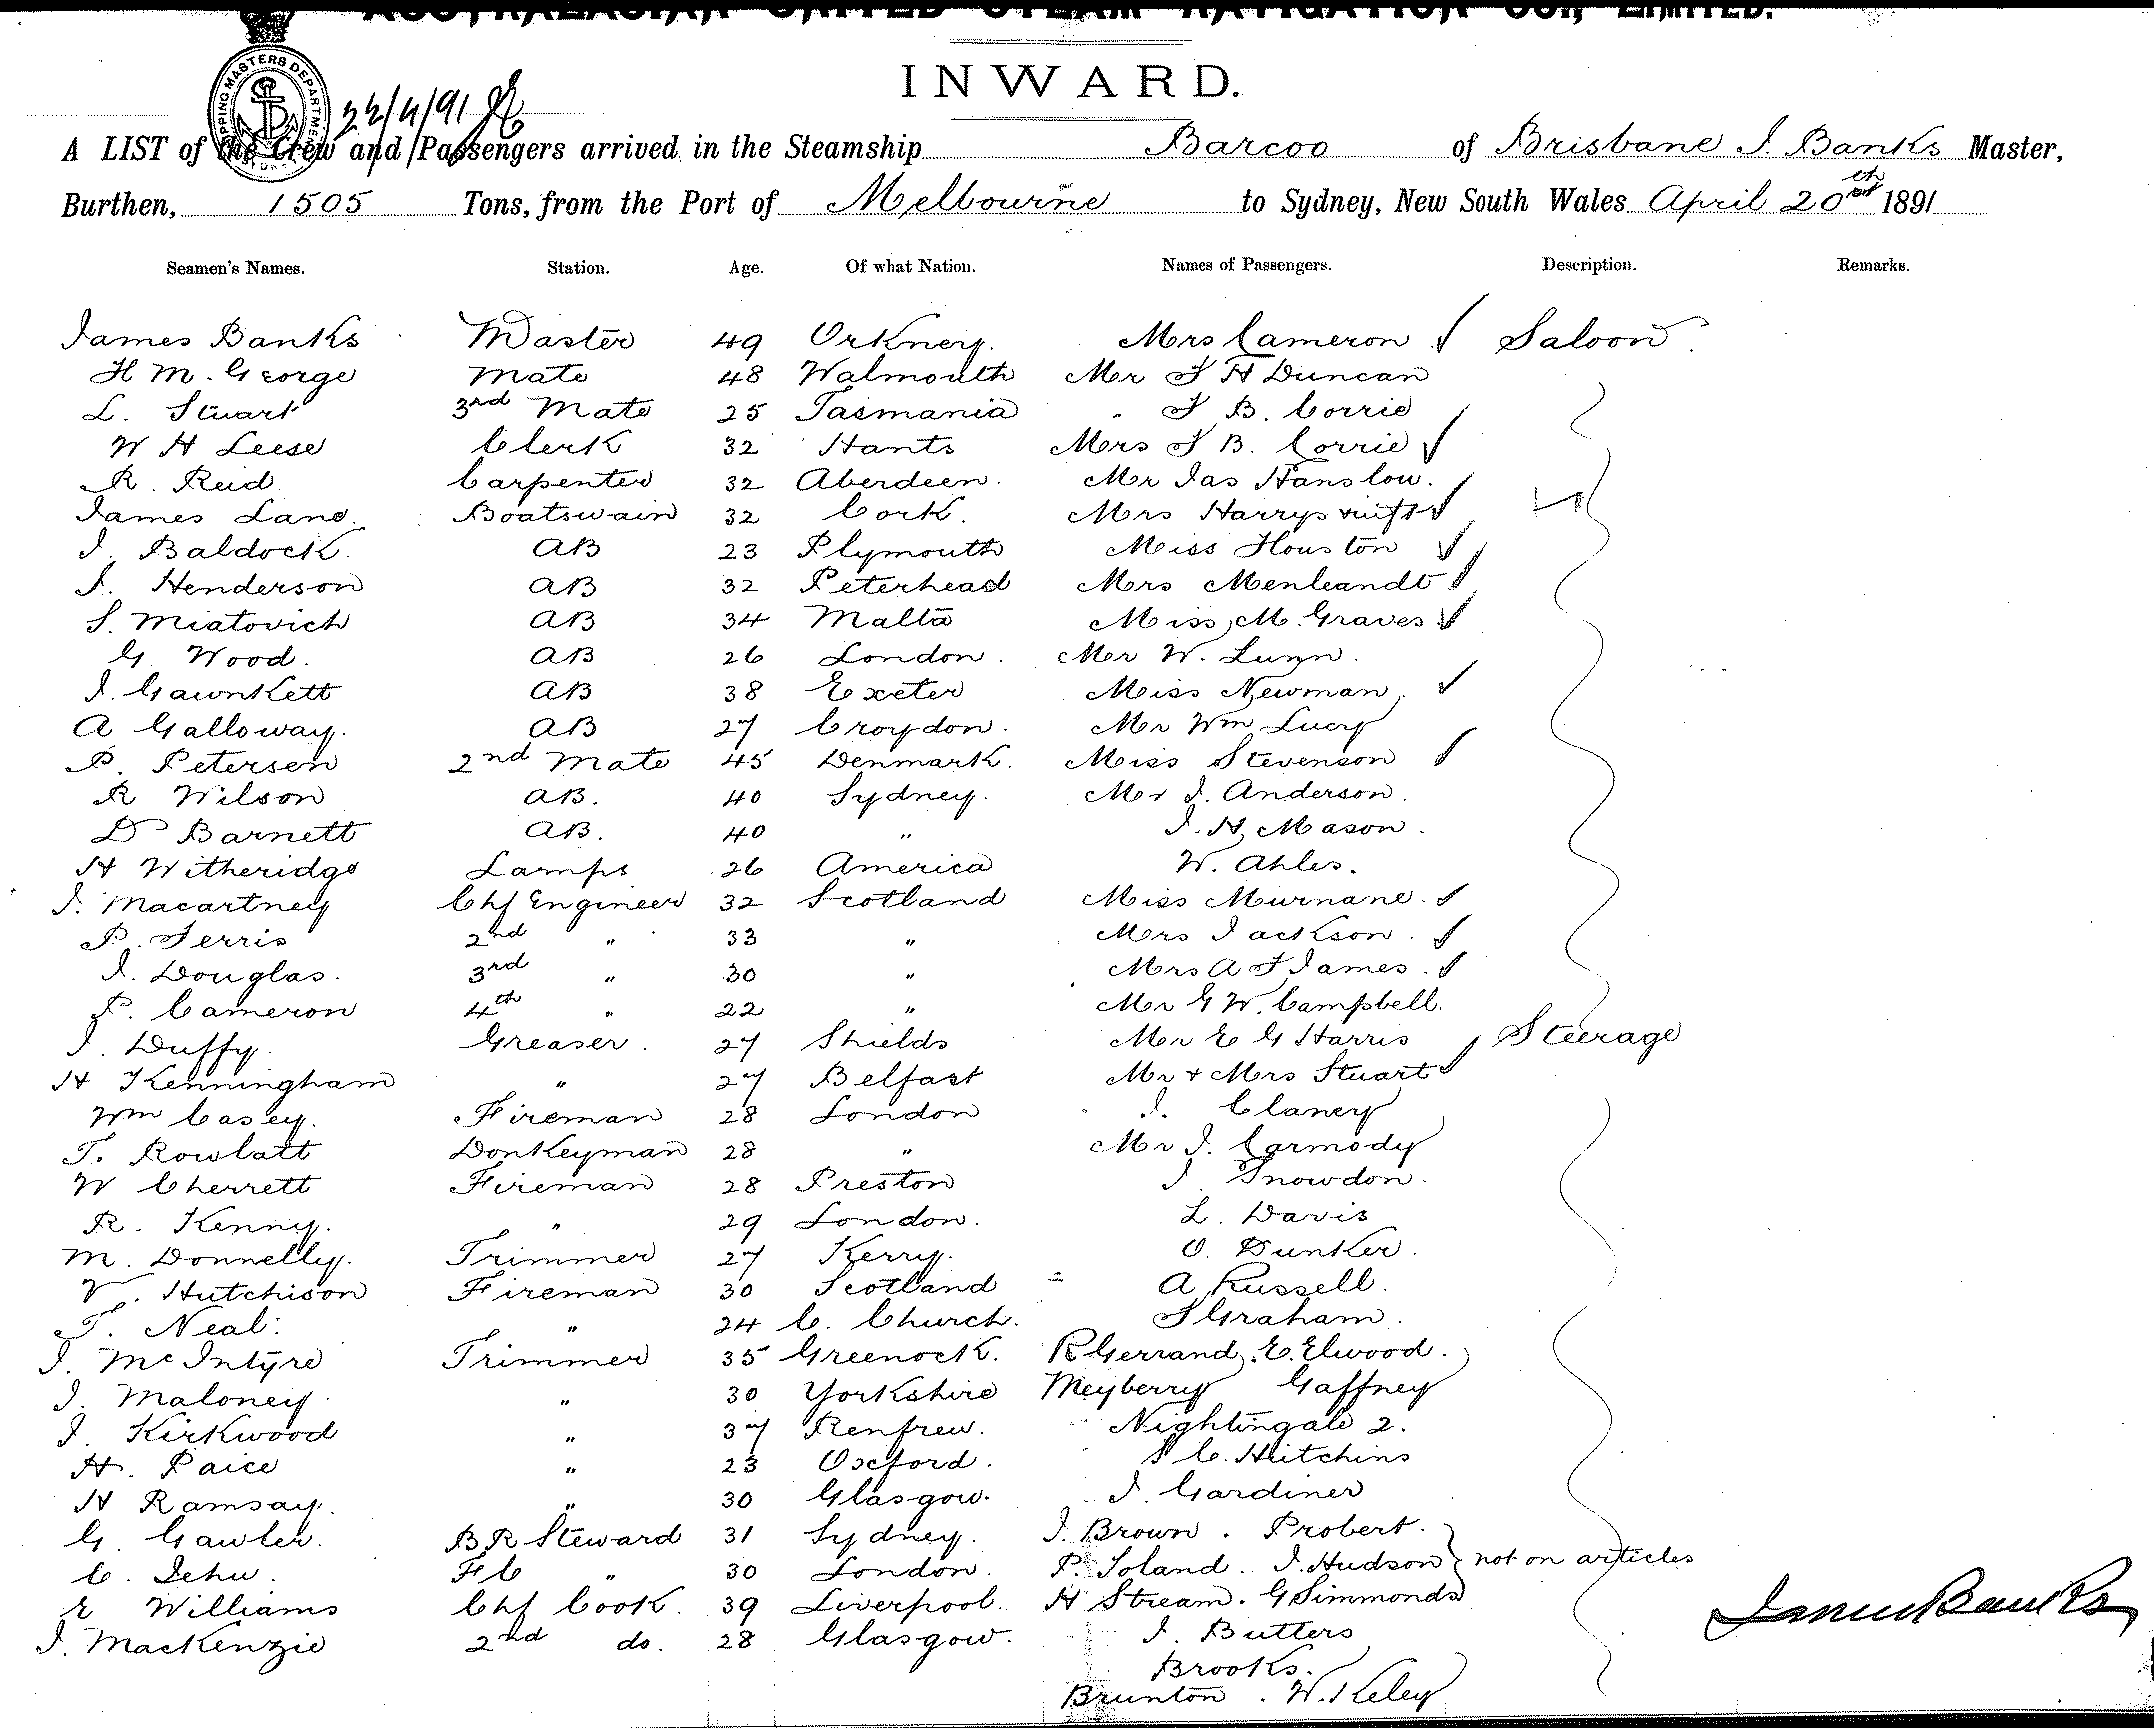 AUSTRALASIAN UNITED STEAM NAVIGATION CO., LIMITED.
INWARD.
22/4/91
A LIST of the Crew and Passengers arrived in the Steamship Barcoo of Brisbane J. Banks Master,
Burthen, 1505 Tons, from the Port of Melbourne to Sydney, New South Wales April 20th 1891
Seamen's Names. Station. Age. Of what Nation. Names of Passengers. Description. Remarks.
James Banks Master 49 Orkney. Mrs Cameron Saloon
H M. George Mate 48 Walmouth Mr F H Duncan
L. Stuart 3rd Mate 25 Tasmania " F B. Corrie
W H Leese Clerk 32 Hants Mrs F B. Corrie
R. Reid Carpenter 32 Aberdeen. Mr Jas Hanslow.
James Lane. Boatswain 32 Cork. Mrs Harry
J. Baldock. AB 23 Plymouth Miss Houston
J. Henderson AB 32 Peterhead Mrs Menleandt
S. Miatovich AB 34 Malta Miss M. Graves
G Wood. AB 26 London. Mr W. Lunn.
J. Gawnkett AB 38 Exeter Miss Newman.
A Galloway. AB 27 Croydon. Mr Wm Lucy
P. Petersen 2nd Mate 45 Denmark. Miss Stevenson
R Wilson AB. 40 Sydney. Mr J. Anderson.
D Barnett AB. 40 " J. H. Mason.
H Witheridge Lamps 26 America W. Ahles.
J. Macartney Chf Engineer 32 Scotland Miss Murnane.
P. Ferris 2nd " 33 " Mrs Jackson.
J. Douglas. 3rd " 30 " Mrs A F James.
P. Cameron 4th " 22 " Mr G W. Campbell.
J. Duffy. Greaser. 27 Shields Mr E G Harris Steerage
H Kenningham " 27 Belfast Mr + Mrs Stuart
Wm Casey. Fireman 28 London J. Clancy
T. Rowlatt Donkeyman 28 " Mr J. Carmody
W Cherrett Fireman 28 Preston J Snowdon.
R. Kenny. " 29 London. L. Davis
M. Donnelly. Trimmer 27 Kerry. O. Dunker.
V. Hutchison Fireman 30 Scotland A Russell.
T. Neal. " 24 C. Church. J Graham.
J. McIntyre Trimmer 35 Greenock. R Gerrand. E. Elwood.
J. Maloney. " 30 Yorkshire Meyberry Gaffney
J. Kirkwood " 37 Renfrew. Nightingale 2.
H. Paice " 23 Oxford. C. Hutchins
H Ramsay. " 30 Glasgow. J. Gardiner
G. Gawler. BR Steward 31 Sydney. J. Brown. Probert.
C. Jehu. FC " 30 London. P. Toland. J. Hudson not on articles
E Williams Chf Cook. 39 Liverpool. H Stream. G Simmonds
J. MacKenzie 2nd do. 28 Glasgow. J. Butters
Brooks.
Brunton. W. Keley
James Banks